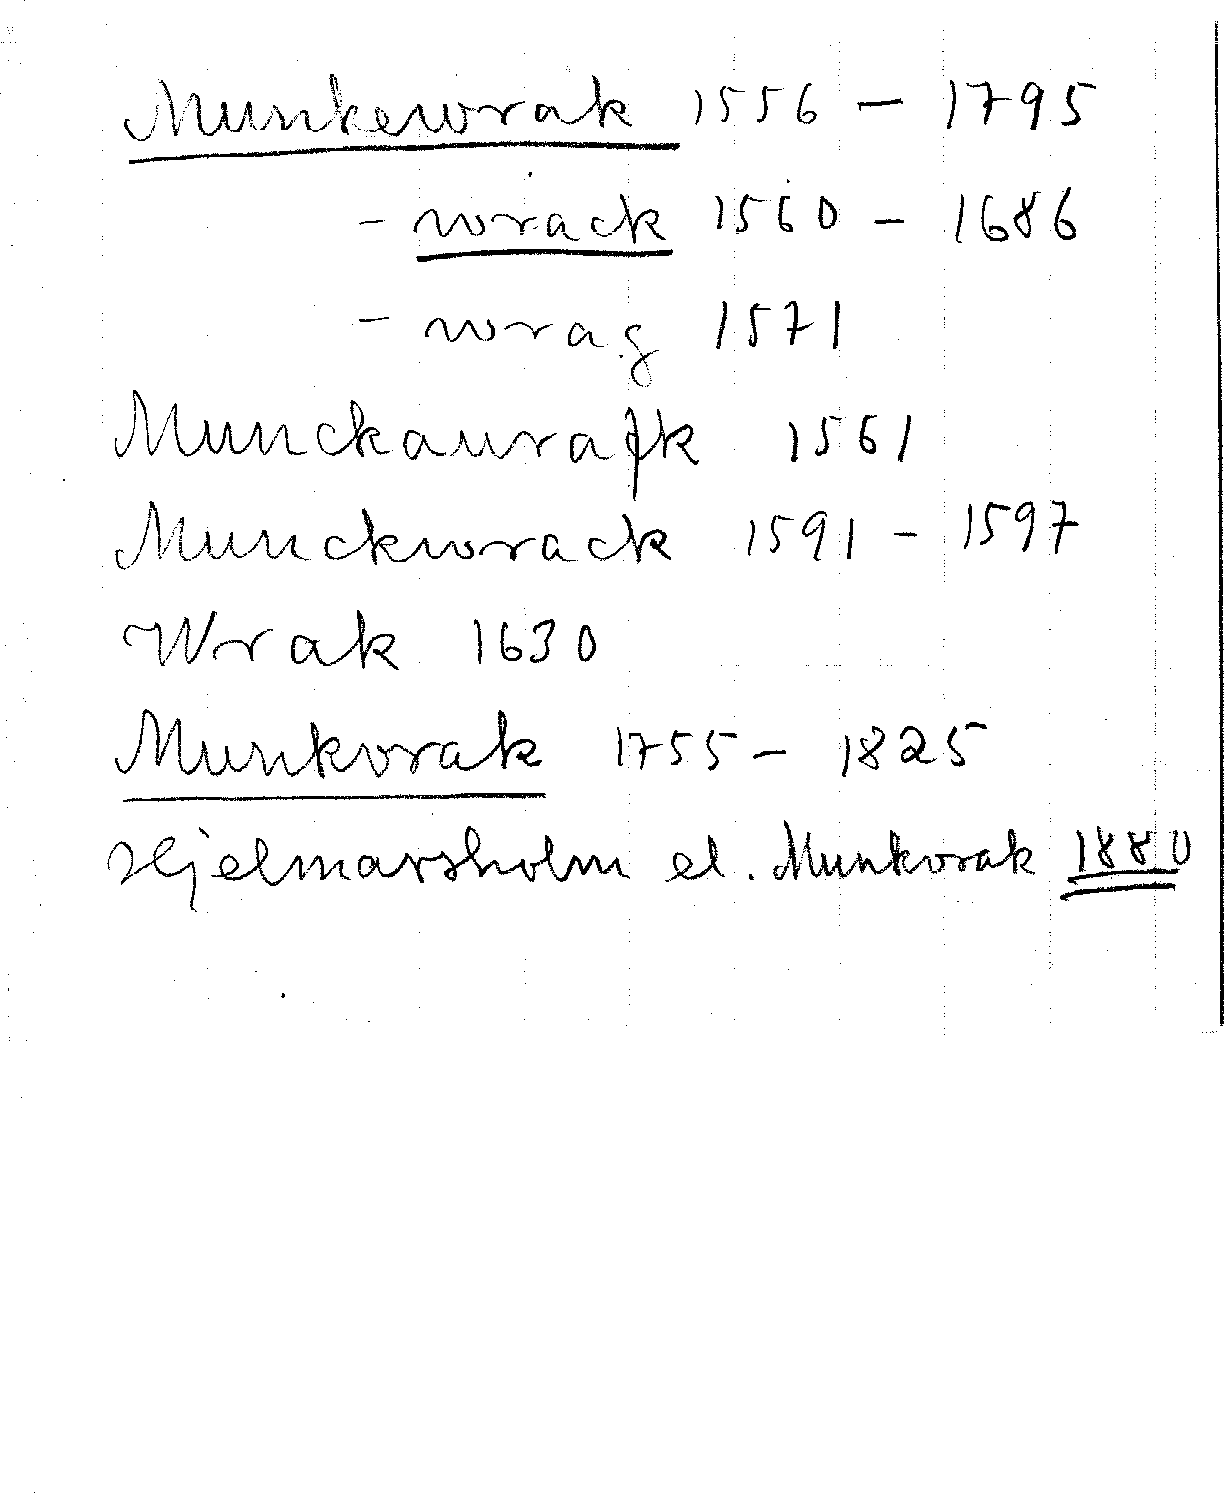 Munkewrak 1556 – 1795
- wrack 1560 – 1686
- wrag 1571
Munckaurafk 1561
Munckwrack 1591 – 1597
Wrak 1630
Munkvrak 1755 – 1825
Hjelmarsholm el. Munkvrak 1880